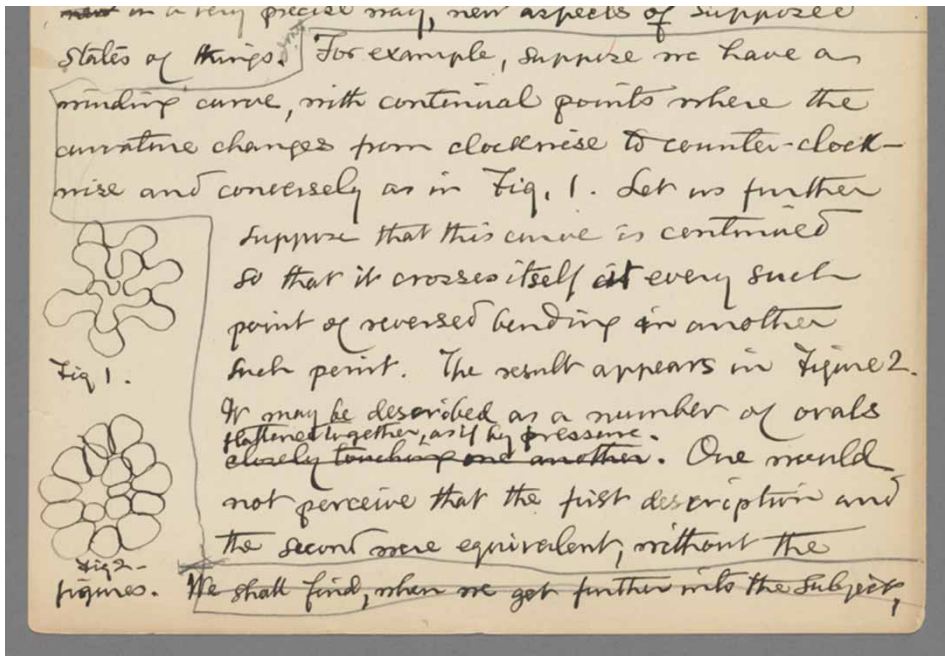 new in a very precise way, new aspects of supposed
states of things. For example, suppose we have a
winding curve, with continual points where the
curvature changes from clockwise to counter-clock-
wise and conversely as in Fig. 1. Let us further
suppose that this curve is continued
so that it crosses itself at every such
point of reversed bending in another
such point. The result appears in Figure 2.
It may be described as a number of ovals
flattened together, as if by pressure.
closely touching one another. One would
not perceive that the first description and
the second were equivalent, without the
figures. We shall find, when we get further into the subject,
Fig 1.
Fig 2-